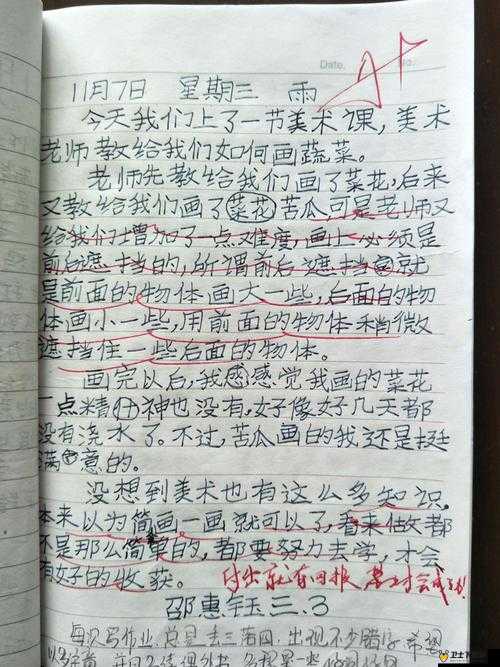 Date.
11月7日 星期三 雨
今天我们上了一节美术课,美术
老师教给我们如何画蔬菜。
老师先教给我们画了菜花,后来
又教给我们画了菜花苦瓜,可是老师又
给我们增加了一点难度,画上必须是
前后遮挡的,所谓前后遮挡就
是前面的物体画大一些,后面的物
体画小一些,用前面的物体稍微
遮挡住一些后面的物体。
画完以后,我感感觉我画的菜花
一点精神也没有,好像好几天都
没有浇水了。不过,苦瓜画的我还是挺
满意的。
没想到美术也有这么多知识,
本来以为简画一画就可以了,看来做都
不是那么简单的,都要努力去学,才会
有好的收获。付出就有回报
邵惠钰三.3
每次写作业,总是丢三落四,出现不少错字